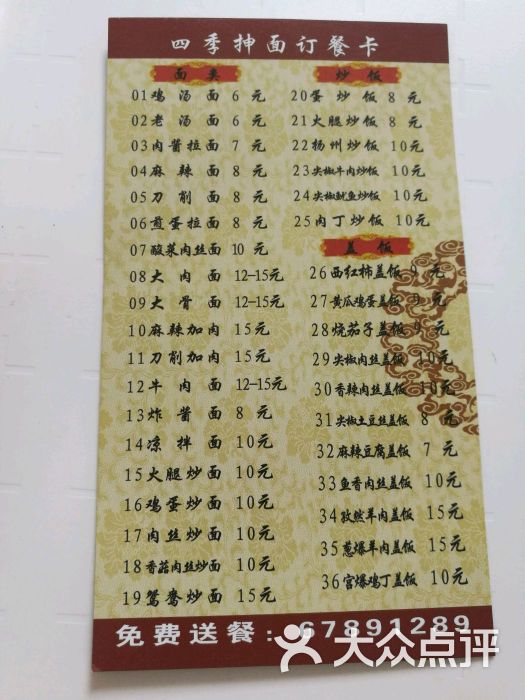 四季抻面订餐卡
面类
01鸡汤面 6元
02老汤面 6元
03肉酱拉面 7元
04麻辣面 8元
05刀削面 8元
06煎蛋拉面 8元
07酸菜肉丝面 10元
08大肉面 12-15元
09大骨面 12-15元
10麻辣加肉 15元
11刀削加肉 15元
12牛肉面 12-15元
13炸酱面 8元
14凉拌面 10元
15火腿炒面 10元
16鸡蛋炒面 10元
17肉丝炒面 10元
18香菇肉丝炒面 10元
19鸳鸯炒面 15元
炒饭
20蛋炒饭 8元
21火腿炒饭 8元
22扬州炒饭 10元
23尖椒牛肉炒饭 10元
24尖椒鱿鱼炒饭 10元
25肉丁炒饭 10元
盖饭
26西红柿盖饭 9元
27黄瓜鸡蛋盖饭 9元
28烧茄子盖饭 9元
29尖椒肉丝盖饭 10元
30香辣肉丝盖饭 10元
31尖椒土豆丝盖饭 8元
32麻辣豆腐盖饭 7元
33鱼香肉丝盖饭 10元
34孜然羊肉盖饭 15元
35葱爆羊肉盖饭 15元
36宫爆鸡丁盖饭 10元
免费送餐：67891289
大众点评